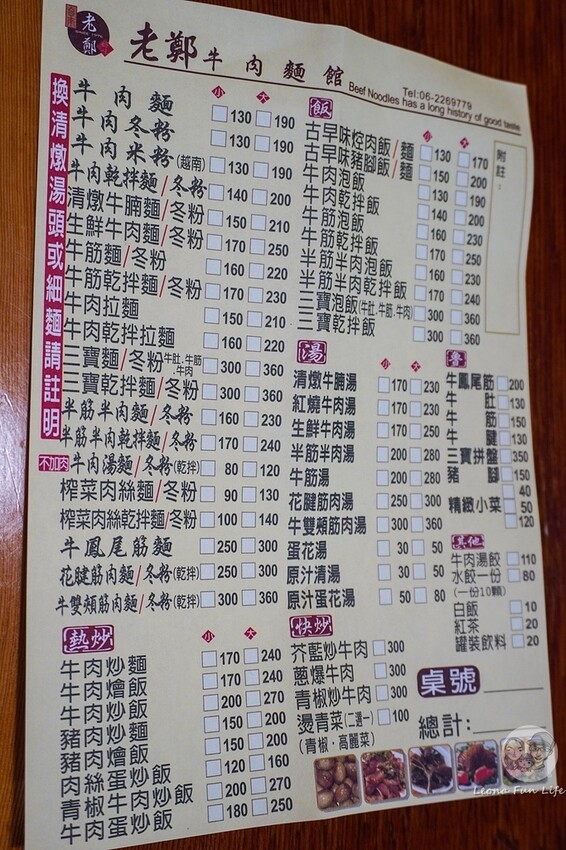 老鄭
老鄭牛肉麵館
Tel:06-2269779
Beef Noodles has a long history of good taste
換清燉湯頭或細麵請註明
小 大
牛肉麵 130 190
牛肉冬粉 130 190
牛肉米粉(越南) 130 190
牛肉乾拌麵/冬粉 140 200
清燉牛腩麵/冬粉 150 210
生鮮牛肉麵/冬粉 170 250
牛筋麵/冬粉 160 220
牛筋乾拌麵/冬粉 170 230
牛肉拉麵 150 210
牛肉乾拌拉麵 160 220
三寶麵/冬粉 牛肚.牛筋.牛肉 300 360
三寶乾拌麵/冬粉 300 360
半筋半肉麵/冬粉 160 230
半筋半肉乾拌麵/冬粉 170 240
不加肉 牛肉湯麵/冬粉(乾拌) 80 120
榨菜肉絲麵/冬粉 90 130
榨菜肉絲乾拌麵/冬粉 100 140
牛鳳尾筋麵 250 300
花腱筋肉麵/冬粉(乾拌) 250 300
牛雙頰筋肉麵/冬粉(乾拌) 300 360
熱炒 小 大
牛肉炒麵 170 240
牛肉燴飯 170 240
牛肉炒飯 200 270
豬肉炒麵 150 200
豬肉燴飯 150 200
肉絲蛋炒飯 120 160
青椒牛肉炒飯 200 270
牛肉蛋炒飯 180 250
飯 小 大
古早味焢肉飯/麵 130 170
古早味豬腳飯/麵 150 200
牛肉泡飯 130 190
牛肉乾拌飯 140 200
牛筋泡飯 160 220
牛筋乾拌飯 170 230
半筋半肉泡飯 160 230
半筋半肉乾拌飯 170 240
三寶泡飯(牛肚.牛筋.牛肉) 300 360
三寶乾拌飯 300 360
附註：
湯 小 大
清燉牛腩湯 170 230
紅燒牛肉湯 170 230
生鮮牛肉湯 170 250
半筋半肉湯 200 280
牛筋湯 200 280
花腱筋肉湯 250 300
牛雙頰筋肉湯 300 360
蛋花湯 30 50
原汁清湯 30 50
原汁蛋花湯 50 80
快炒
芥藍炒牛肉 300
蔥爆牛肉 300
青椒炒牛肉 300
燙青菜(二選一) 100
(青椒．高麗菜)
魯
牛鳳尾筋 200
牛肚 130
牛筋 150
牛腱 130
三寶拼盤 350
豬腳 150
精緻小菜 40
50
120
其他
牛肉湯餃 110
水餃一份 80
(一份10顆)
白飯 10
紅茶 20
罐裝飲料 20
桌號
總計：
Leona Fun Life